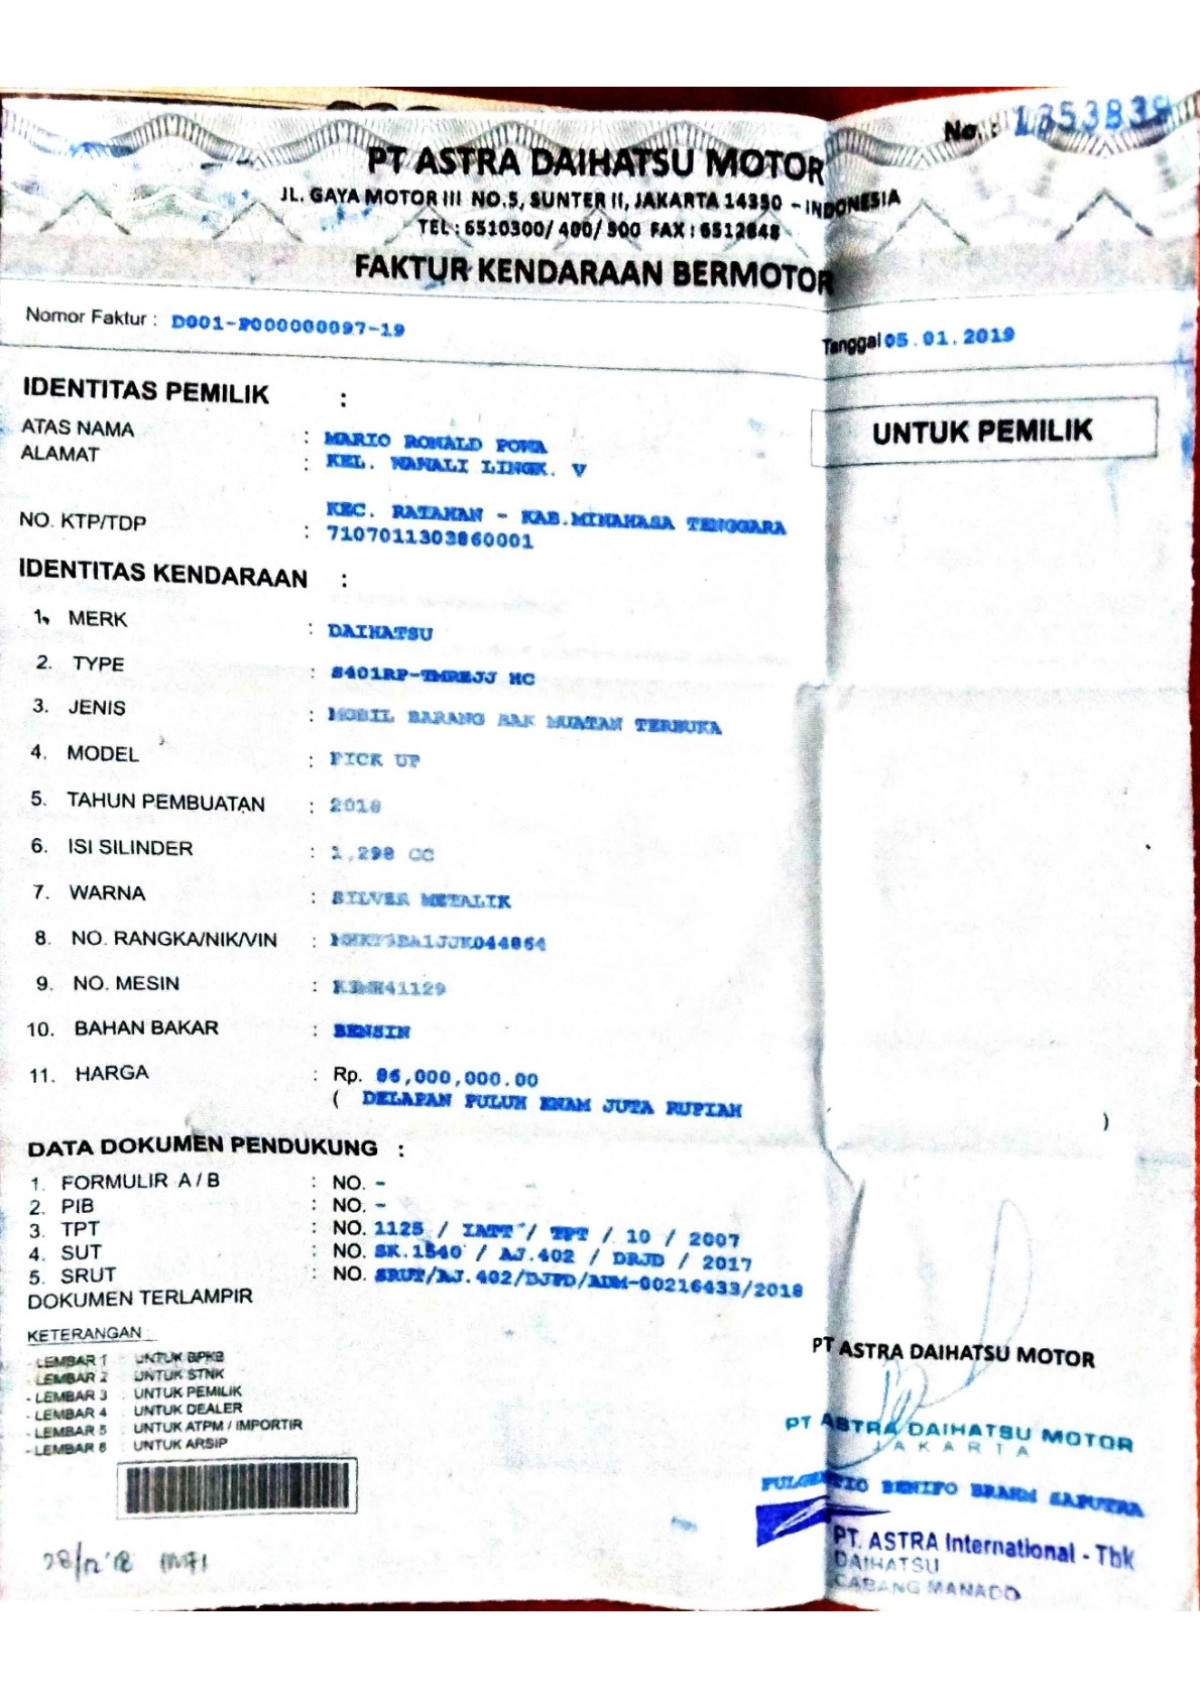 No. : 1353839
PT ASTRA DAIHATSU MOTOR
JL. GAYA MOTOR III NO.5, SUNTER II, JAKARTA 14350 - INDONESIA
TEL : 6510300/ 400/ 500 FAX : 6512848
FAKTUR KENDARAAN BERMOTOR
Nomor Faktur : D001-P000000097-19
Tanggal 05.01.2019
IDENTITAS PEMILIK :
UNTUK PEMILIK
ATAS NAMA : MARIO RONALD POWA
ALAMAT : KEL. WAWALI LINGK. V
KEC. RATAHAN - KAB.MINAHASA TENGGARA
NO. KTP/TDP : 7107011303860001
IDENTITAS KENDARAAN :
1. MERK : DAIHATSU
2. TYPE : S401RP-TMREJJ HC
3. JENIS : MOBIL BARANG BAK MUATAN TERBUKA
4. MODEL : PICK UP
5. TAHUN PEMBUATAN : 2018
6. ISI SILINDER : 1,298 CC
7. WARNA : SILVER METALIK
8. NO. RANGKA/NIK/VIN :
9. NO. MESIN :
10. BAHAN BAKAR : BENSIN
11. HARGA : Rp. 86,000,000.00
( DELAPAN PULUH ENAM JUTA RUPIAH )
DATA DOKUMEN PENDUKUNG :
1. FORMULIR A / B : NO. -
2. PIB : NO. -
3. TPT : NO. 1125 / IATT / TPT / 10 / 2007
4. SUT : NO. SK.1540 / AJ.402 / DRJD / 2017
5. SRUT : NO. SRUT/AJ.402/DJPD/ADM-00216433/2018
DOKUMEN TERLAMPIR
KETERANGAN :
- LEMBAR 1 : UNTUK BPKB
- LEMBAR 2 : UNTUK STNK
- LEMBAR 3 : UNTUK PEMILIK
- LEMBAR 4 : UNTUK DEALER
- LEMBAR 5 : UNTUK ATPM / IMPORTIR
- LEMBAR 6 : UNTUK ARSIP
PT ASTRA DAIHATSU MOTOR
PT ASTRA DAIHATSU MOTOR
JAKARTA
FULGENTIO BENIFO BRAHM SAPUTRA
PT. ASTRA International - Tbk
DAIHATSU
CABANG MANADO
28/12 '18